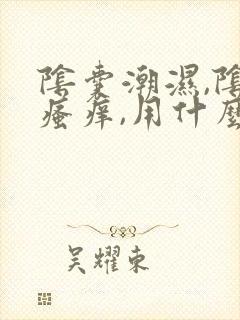 陰囊潮濕,陰
瘙癢,用什麼
吳耀東